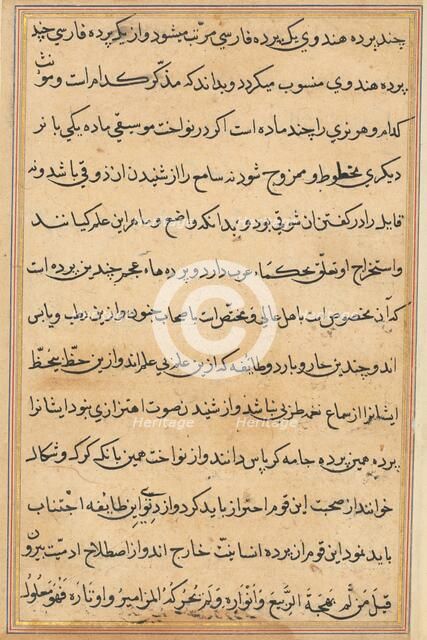 چند پرده هندوي یک پرده فارسي مرتب میشود و از یک پرده فارسي چند
پرده هندوي منسوب میکردد و بداند که مذکر کدام است و مونث
کدام و هر نري را چند ماده است اکر در نواخت موسیقي ماده یکي با نر
دیکري مخطوط و ممزوج شود نه سامع را از شنیدن ان ذوقي باشد و نه
قایله را در کفتن ان شوقي بود و بداند که واضع و ماهر این علم کیانند
و استخراج او تعلق بحکماء عرب دارد و پرده هاء عجم چندین پرده است
که آن مخصوص است باهل عالي و مختص است باصحاب خمود و از ین رطب و یابس
اند و چندین حار و بارد و طایفه که ازین علم بي علم اند و ازین حظ بیحظ
ایشانرا از سماع نغمه طربي نباشد و از شنید ن صوت اهتزازي نبود ایشانرا
پرده همین پرده جامه کرباس دانند و از نواخت همین بانک کرک و شکال
خوانند از صحبت این قوم احتراز باید کرد و از دوي این طایفه اجتناب
باید نمود این قوم از پرده انسانیت خارج اند و از اصطلاح ادمیت بیرون
قیل من لم یهجة الربیع و انواره و لم تحرکه المزامیر و اوتاره فهو معلول
Heritage
Heritage
Heritage
Heritage
Heritage
Heritage